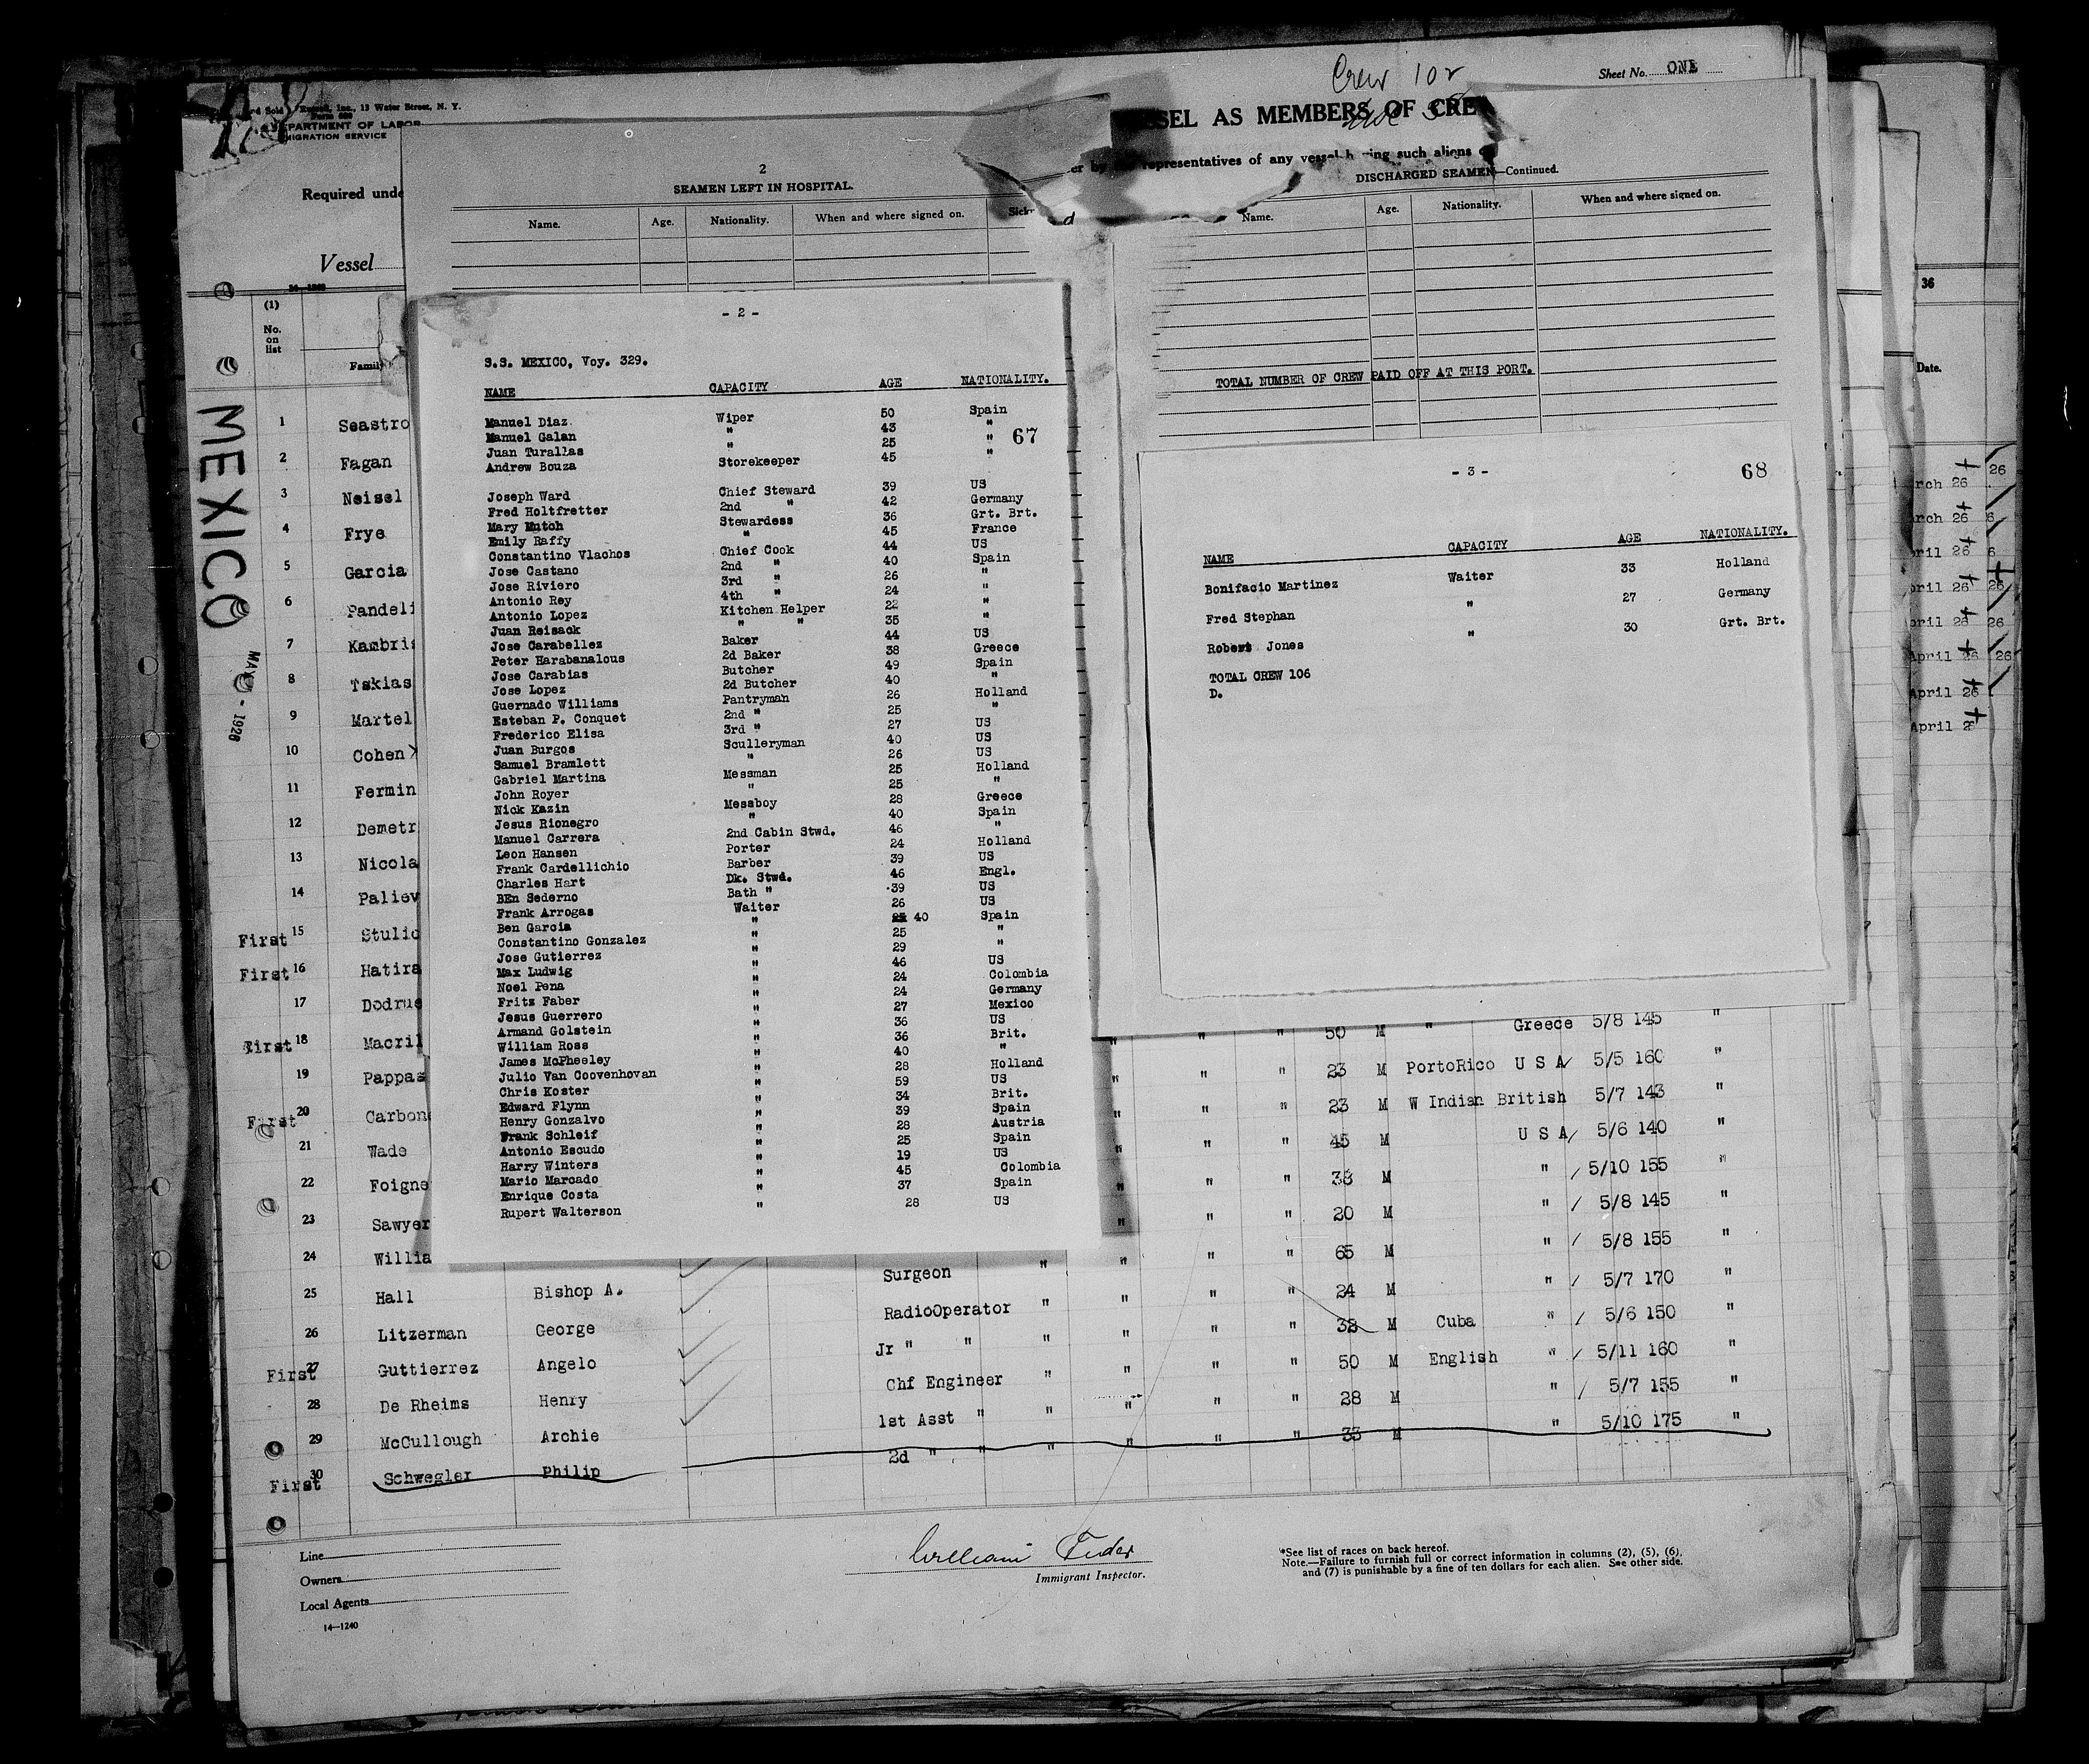 Crew 102
Sheet No. ONE
Inc., 13 Water Street, N. Y.
DEPARTMENT OF LABOR
IMMIGRATION SERVICE
SEL AS MEMBERS OF CRE
representatives of any vessel
such aliens
Required unde
Vessel
2
SEAMEN LEFT IN HOSPITAL.
Name. Age. Nationality. When and where signed on.
DISCHARGED SEAMEN—Continued.
Name. Age. Nationality. When and where signed on.
TOTAL NUMBER OF CREW PAID OFF AT THIS PORT.
(1)
No.
on
list
Famil
MEXICO
1926
1 Seastro
2 Fagan
3 Neisel
4 Frye
5 Garcia
6 Pandeli
7 Kambris
8 Tskias
9 Martel
10 Cohen
11 Fermin
12 Demetr
13 Nicola
14 Paliev
First 15 Stulic
First 16 Hatira
17 Dodrue
First 18 Macril
19 Pappas
First 20 Carbon
21 Wade
22 Foigne
23 Sawyer
24 Willia
- 2 -
S.S. MEXICO, Voy. 329.
NAME CAPACITY AGE NATIONALITY.
Manuel Diaz Wiper 50 Spain
Manuel Galan " 43 "
67
Juan Turallas " 25 "
Andrew Bouza Storekeeper 45 "
Joseph Ward Chief Steward 39 US
Fred Holtfretter 2nd " 42 Germany
Mary Mutch Stewardess 36 Grt. Brt.
Emily Raffy " 45 France
Constantino Vlachos Chief Cook 44 US
Jose Castano 2nd " 40 Spain
Jose Riviero 3rd " 26 "
Antonio Rey 4th " 24 "
Antonio Lopez Kitchen Helper 22 "
Juan Reisack " " 35 "
Jose Carabellez Baker 44 US
Peter Harabanalous 2d Baker 38 Greece
Jose Carabias Butcher 49 Spain
Jose Lopez 2d Butcher 40 "
Guernado Williams Pantryman 26 Holland
Esteban P. Conquet 2nd " 25 "
Frederico Elisa 3rd " 27 US
Juan Burgos Sculleryman 40 US
Samuel Bramlett " 26 US
Gabriel Martina Messman 25 Holland
John Royer " 25 "
Nick Kazin Messboy 28 Greece
Jesus Rionegro " 40 Spain
Manuel Carrera 2nd Cabin Stwd. 46 "
Leon Hansen Porter 24 Holland
Frank Cardellichio Barber 39 US
Charles Hart Dk. Stwd. 46 Engl.
BEn Sederno Bath " 39 US
Frank Arrogas Waiter 26 US
Ben Garcia " 40 Spain
Constantino Gonzalez " 25 "
Jose Gutierrez " 29 "
Max Ludwig " 46 US
Noel Pena " 24 Colombia
Fritz Faber " 24 Germany
Jesus Guerrero " 27 Mexico
Armand Golstein " 36 US
William Ross " 36 Brit.
James McPheeley " 40 "
Julio Van Coovenhovan " 28 Holland
Chris Koster " 59 US
Edward Flynn " 34 Brit.
Henry Gonzalvo " 39 Spain
Frank Schleif " 28 Austria
Antonio Escudo " 25 Spain
Harry Winters " 19 US
Mario Marcado " 45 Colombia
Enrique Costa " 37 Spain
Rupert Walterson " 28 US
- 3 - 68
NAME CAPACITY AGE NATIONALITY.
Bonifacio Martinez Waiter 33 Holland
Fred Stephan " 27 Germany
Robert Jones " 30 Grt. Brt.
TOTAL CREW 106
D.
36
Date.
rch 26
arch 26
pril 26
pril 26
pril 26
April 26
April 26
April 26
" " " 50 M " Greece 5/8 145 "
" " " 23 M PortoRico U S A 5/5 160 "
" " " 23 M W Indian British 5/7 143 "
" " " 45 M U S A 5/6 140 "
" " " 38 M " 5/10 155 "
" " " 20 M " 5/8 145 "
" " " 65 M " 5/8 155 "
25 Hall Bishop A. Surgeon " " " " 24 M " 5/7 170 "
26 Litzerman George RadioOperator " " " " 38 M Cuba " 5/6 150 "
First 27 Guttierrez Angelo Jr " " " " " " 50 M English " 5/11 160 "
28 De Rheims Henry Chf Engineer " " " " 28 M " 5/7 155 "
29 McCullough Archie 1st Asst " " " " " 33 M " 5/10 175 "
First 30 Schwegler Philip 2d " " " " "
Line
Owners
Local Agents
14—1240
William Feder
Immigrant Inspector.
*See list of races on back hereof.
Note.—Failure to furnish full or correct information in columns (2), (5), (6),
and (7) is punishable by a fine of ten dollars for each alien. See other side.